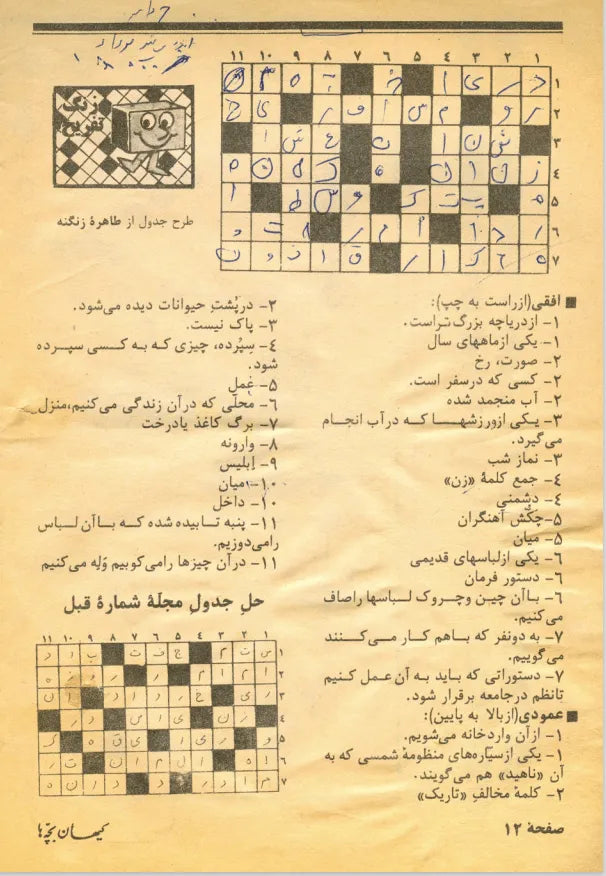 زنگ
تفریح
طرح جدول از طاهرهٔ زنگنه
۱ ۲ ۳ ۴ ۵ ۶ ۷ ۸ ۹ ۱۰ ۱۱
۱
۲
۳
۴
۵
۶
۷
افقی (از راست به چپ):
۱- از دریاچه بزرگ‌تر است.
۱- یکی از ماههای سال
۲- صورت، رخ
۲- کسی که در سفر است.
۲- آب منجمد شده
۳- یکی از ورزشهــا کـه در آب انجـام
می‌گیرد.
۳- نماز شب
۴- جمع کلمهٔ «زن»
۴- دشمنی
۵- چکش آهنگران
۵- میان
۶- یکی از لباسهای قدیمی
۶- دستور فرمان
۶- با آن چین و چروک لبـاسها را صاف
می‌کنیم.
۷- به دو نفر که باهم کار می‌کـننـد
می‌گوییم.
۷- دستوراتی که باید به آن عمل کنیم
تا نظم در جامعه برقرار شود.
عمودی (از بالا به پایین):
۱- از آن وارد خانه می‌شویم.
۱- یکی از سیّاره‌های منظومهٔ شمسی که به
آن «ناهید» هم می‌گویند.
۲- کلمه مخالفِ «تاریک»
۲- در پُشتِ حیوانات دیده می‌شود.
۳- پاک نیست.
۴- سِپُرده، چیزی کـه بـه کـسی سپـرده
شود.
۵- عمل
۶- محلّی که در آن زندگی می‌کنیم، منزل
۷- برگ کاغذ یا درخت
۸- وارونه
۹- اِبلیس
۱۰- میان
۱۰- داخل
۱۱- پنبه تـابیده شده کـه بـا آن لـباس
را می‌دوزیم.
۱۱- در آن چیزها را می‌کوبیم و لِه می‌کنیم
حلِ جدولِ مجلّهٔ شمارهٔ قبل
۱ ۲ ۳ ۴ ۵ ۶ ۷ ۸ ۹ ۱۰ ۱۱
۱
۲
۳
۴
۵
۶
۷
صفحهٔ ۱۲
کیهـان بچّه‌ها